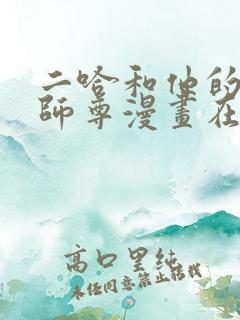 二哈和他的
師尊漫畫在
高口里純
未经同意禁止转载